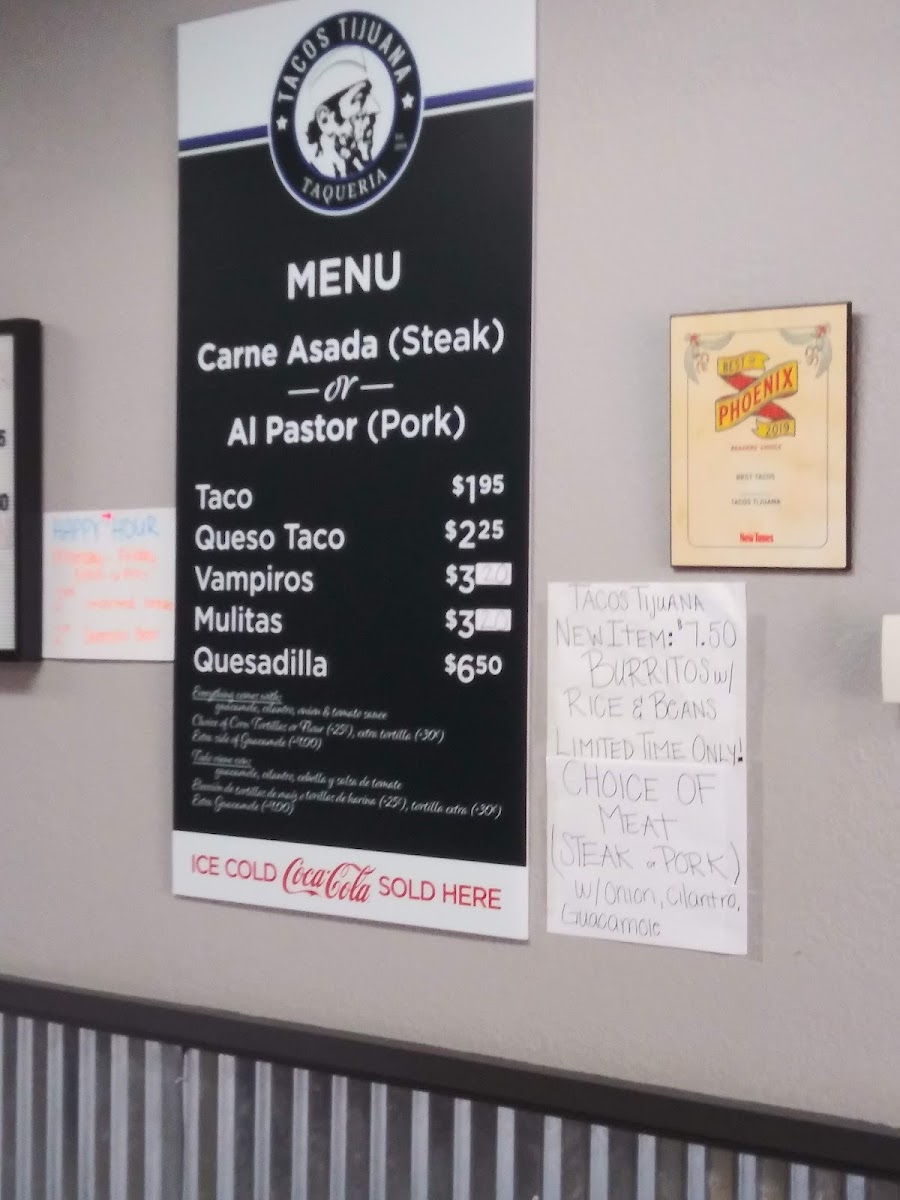 TACOS TIJUANA
TAQUERIA
MENU
Carne Asada (Steak)
or
Al Pastor (Pork)
Taco $1.95
Queso Taco $2.25
Vampiros $3
Mulitas $3
Quesadilla $6.50
Everything comes with:
guacamole, cilantro, onion & tomato sauce
Choice of Corn Tortillas or Flour (+25¢), extra tortilla (+30¢)
Extra side of Guacamole (+1.00)
Todo viene con:
guacamole, cilantro, cebolla y salsa de tomate
tortillas de maiz o tortillas de harina (+25¢), tortilla extra (+30¢)
Extra Guacamole (+1.00)
ICE COLD Coca-Cola SOLD HERE
HAPPY HOUR
BEST OF
PHOENIX
2019
READERS' CHOICE
BEST TACOS
TACOS TIJUANA
New Times
TACOS TIJUANA
NEW ITEM: $7.50
BURRITOS W/
RICE & BEANS
LIMITED TIME ONLY!
CHOICE OF
MEAT
(STEAK or PORK)
W/ Onion, Cilantro,
Guacamole